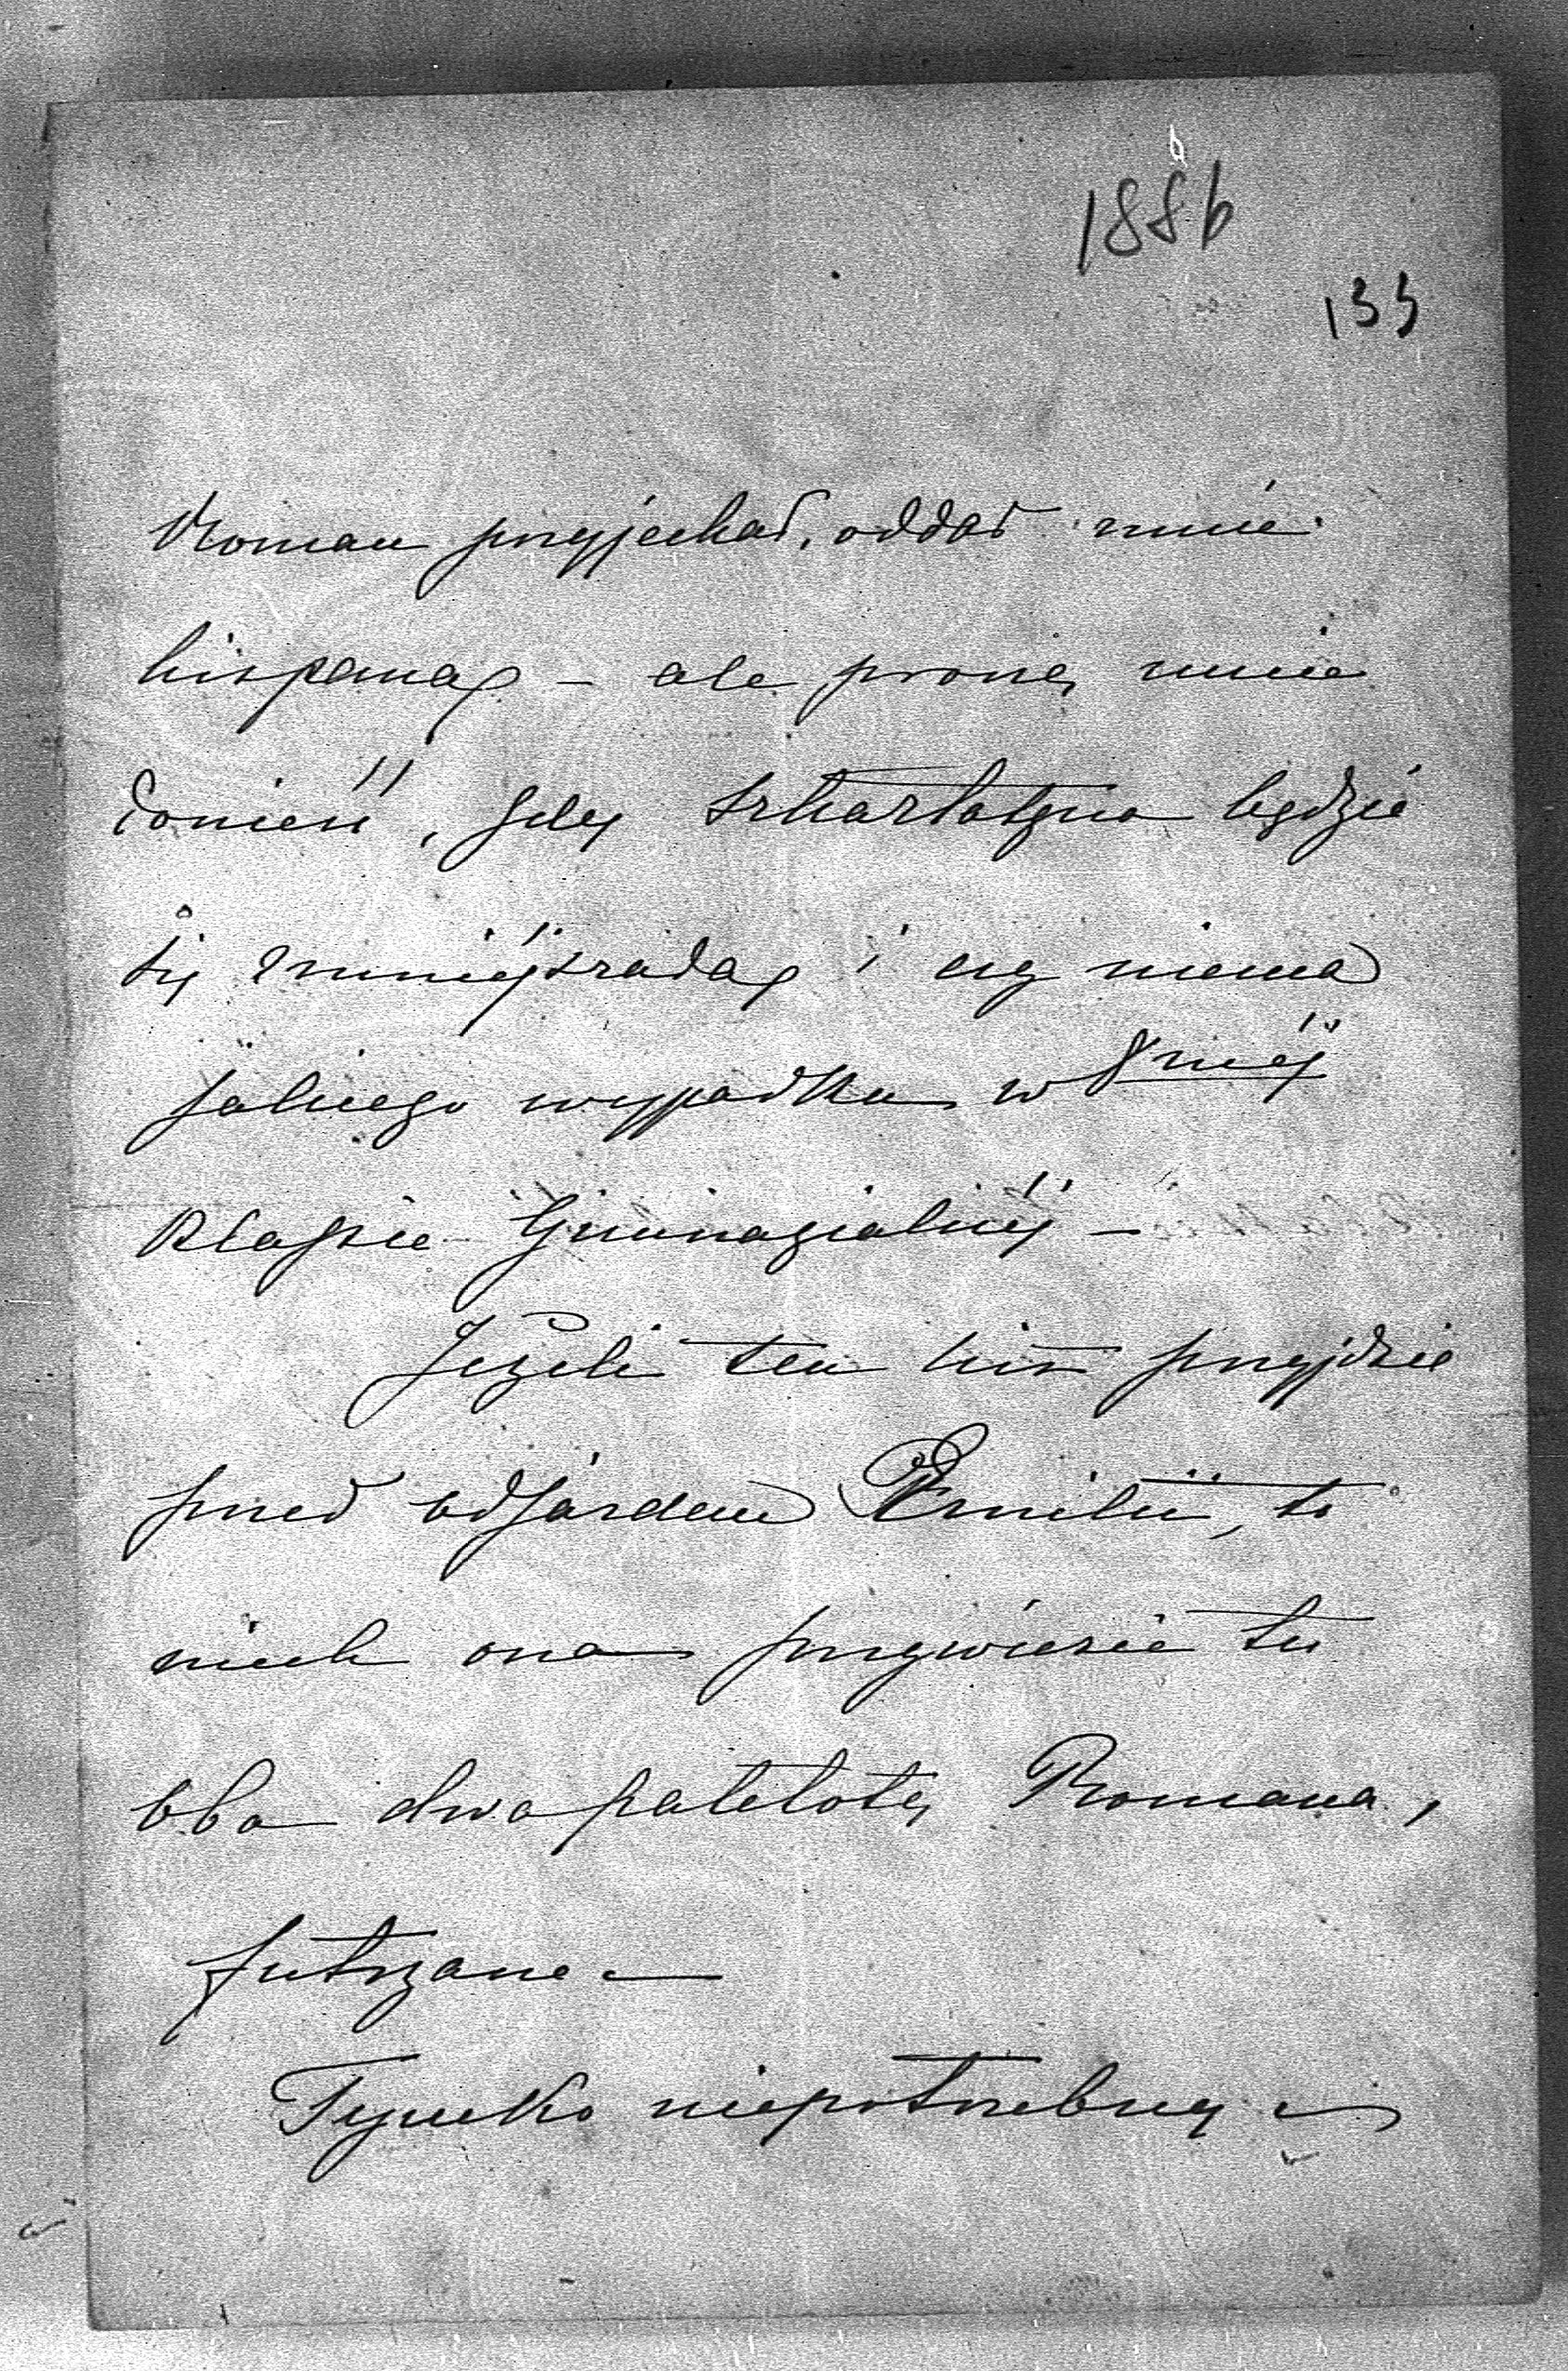 1886
133
Roman przyjechał, oddał mnie
hiszpana – ale proszę mnie
donieść, gdy szkarlatyna będzie
się zmniejszała i czy niema
jakiego wypadku w 8mėj
klassie Gimnazialnėj –
Jeżeli ten list przyjdzie
przed odjazdem Emilii, to
niech ona przywiezie tu
oba dwa paletoty Romana,
futrzane –
Tymcko niepotrzebny